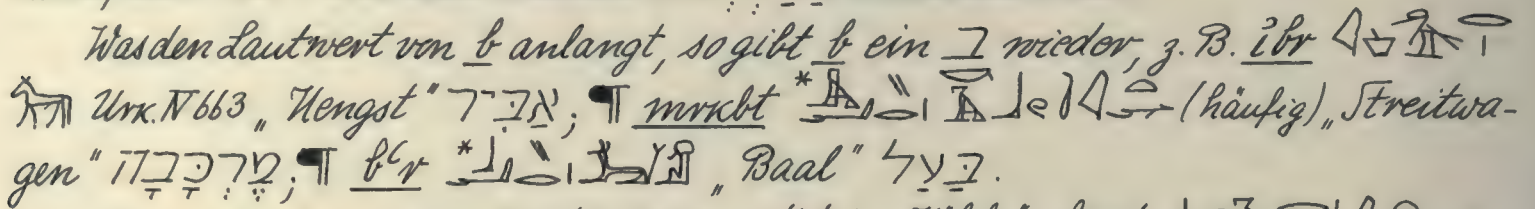 Was den Lautwert von b anlangt, so gibt b ein ב wieder, z. B. i҆br
Urk. IV 663 „Hengst“ אַבִּיר; ¶ mrkbt * (häufig) „Streitwa-
gen“ מֶרְכָּבָה; ¶ bꜥr * „Baal“ בַּעַל.